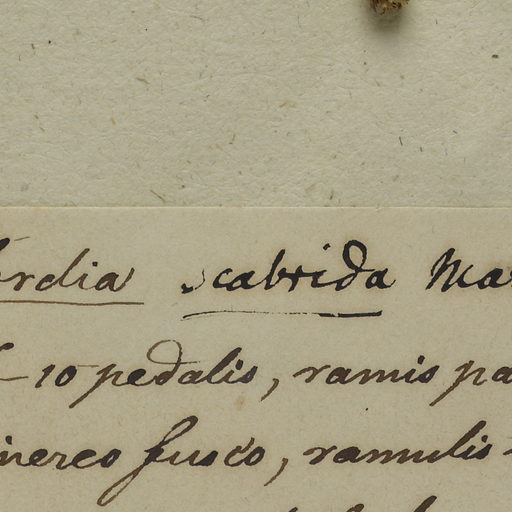 erdia scabrida Mar
- 10 pedalis, ramis pa
inereo fusco, ramulis